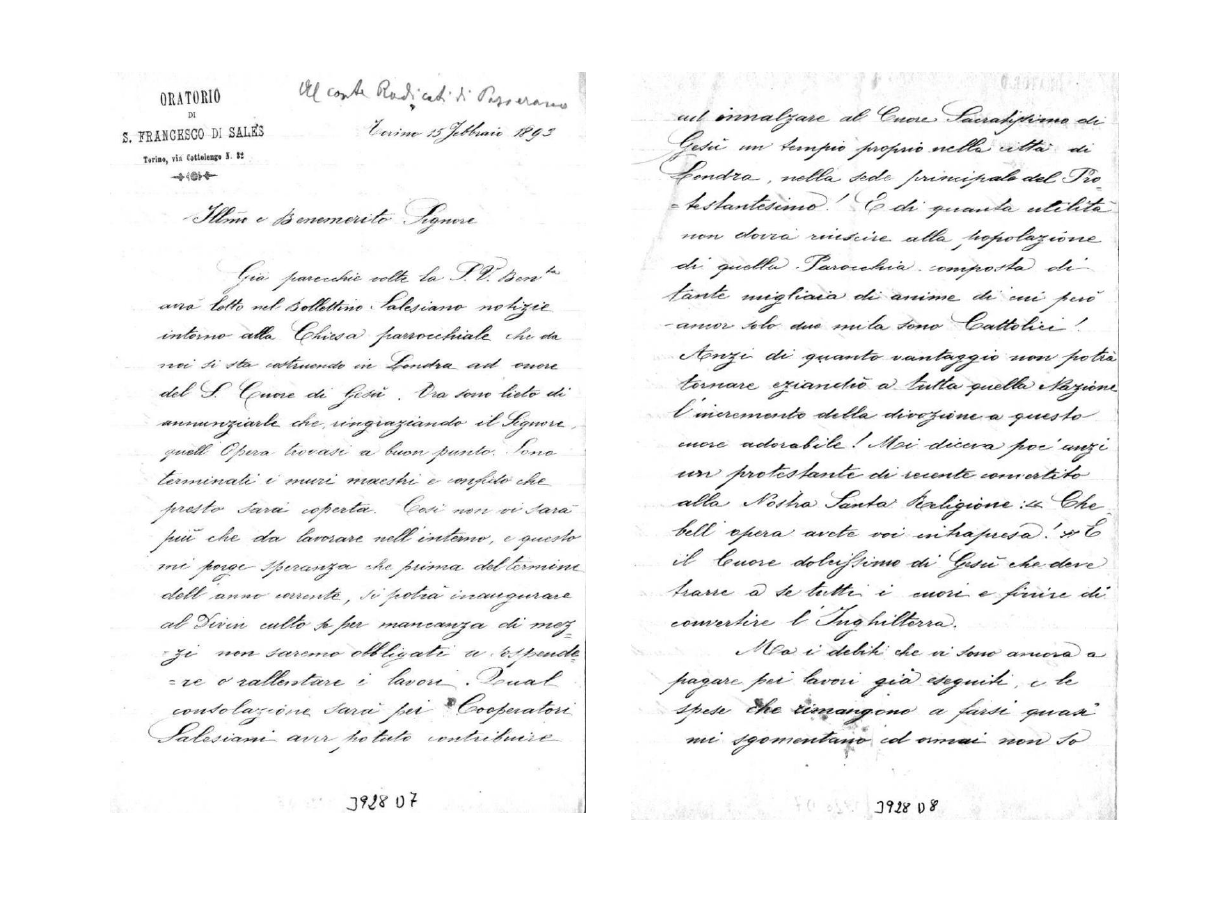 ORATORIO
DI
S. FRANCESCO DI SALES
Torino, via Cottolengo N. 32
Al conte Radicati di Passerano
Torino 15 Febbraio 1893
Illmo e Benemerito Signore
Già parecchie volte la S. V. Benta
avrà letto nel Bollettino Salesiano notizie
intorno alla Chiesa parrocchiale che da
noi si sta costruendo in Londra ad onore
del S. Cuore di Gesù. Ora sono lieto di
annunziarle che, ringraziando il Signore,
quell'Opera trovasi a buon punto. Sono
terminati i muri maestri e confido che
presto sarà coperta. Così non vi sarà
più che da lavorare nell'interno, e questo
mi porge speranza che prima del termine
dell'anno corrente, si potrà inaugurare
al Divin culto se per mancanza di mez-
-zi non saremo obbligati a sospende-
=re o rallentare i lavori. Qual
consolazione sarà pei Cooperatori
Salesiani aver potuto contribuire
3928 D7
ad innalzare al Cuore Sacratissimo di
Gesù un tempio proprio nella città di
Londra, nella sede principale del Pro-
=testantesimo! E di quanta utilità
non dovrà riuscire alla popolazione
di quella Parocchia composta di
tante migliaia di anime di cui però
ancor solo due mila sono Cattolici!
Anzi di quanto vantaggio non potrà
tornare eziandio a tutta quella Nazione
l'incremento della divozione a questo
cuore adorabile! Mi diceva poc'anzi
un protestante di recente convertito
alla Nostra Santa Religione: « Che
bell'opera avete voi intrapresa! » È
il Cuore dolcissimo di Gesù che deve
trarre a se tutti i cuori e finire di
convertire l'Inghilterra.
Ma i debiti che vi sono ancora a
pagare pei lavori già eseguiti, e le
spese che rimangono a farsi quasi
mi sgomentano ed ormai non so
3928 D8